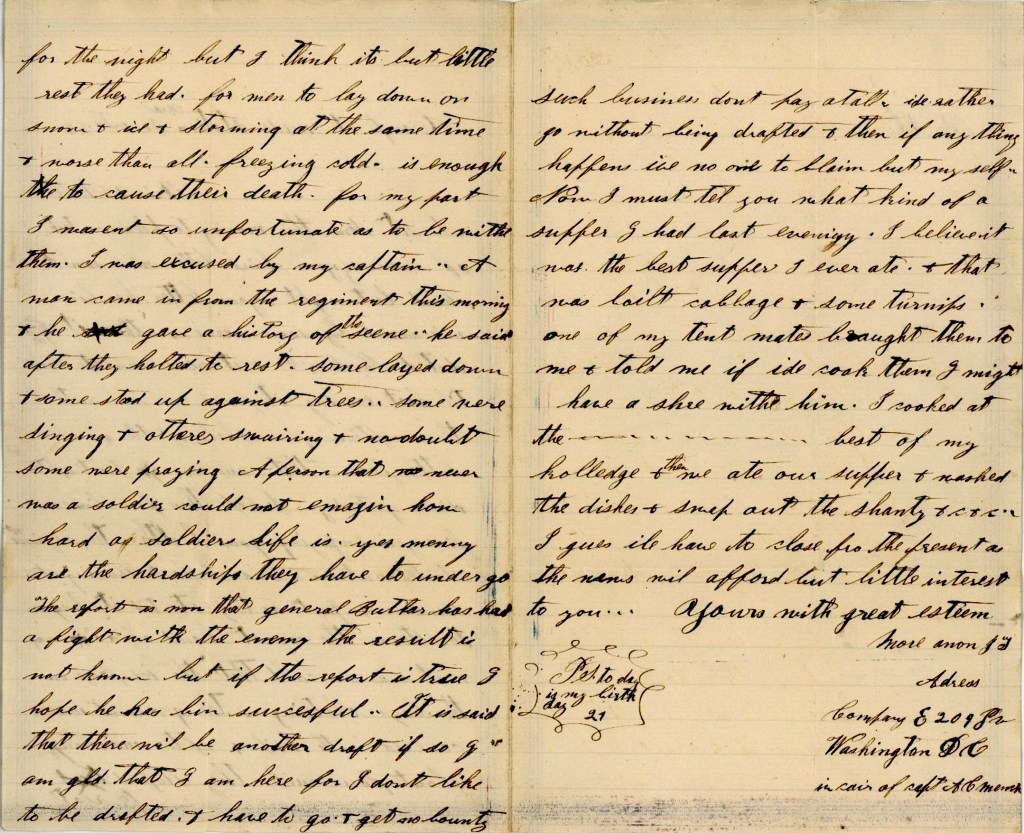 for the night but I think its but little
rest they had. for men to lay down on
snow & ice & storming at the same time
& worse than all. freezing cold. is enough
the to cause their death. for my part
I wasent so unfortunate as to be withe
them. I was excused by my captain.. A
man came in from the regiment this morning
& he gave a history of the scene.. he said
after they holted to rest. some layed down
& some stod up against trees.. some were
singing & otheres swairing & no doubt
some were praying A person that never
was a soldier could not emagin how
hard a soldiers life is. yes menny
are the hardships they have to under go
The report is now that general Buttlar has had
a fight with the enemy the result is
not known but if the report is true I
hope he has bin succesful.. It is said
that there wil be another draft if so I
am glad that I am here for I dont like
to be drafted. & have to go & get no bounty
such business dont pay atall. ide rather
go without being drafted & then if any thing
happens ive no one to blaim but my self..
Now I must tel you what kind of a
supper I had last evenigy. I believe it
was the best supper I ever ate. & that
was boilt cabbage & some turnips.
one of my tent mates braught them to
me & told me if ide cook them I might
have a shre withe him. I cooked at
the best of my
kolledge & then we ate our supper & washed
the dishes & swep out the shanty & c & c..
I gues ile have to close fro the present as
the news wil afford but little interest
to you... Yours with great esteem
More anon J T
Pet to day
is my birth
day 21
Adress
Company E 209 P V
Washington D C
in cair of capt A C